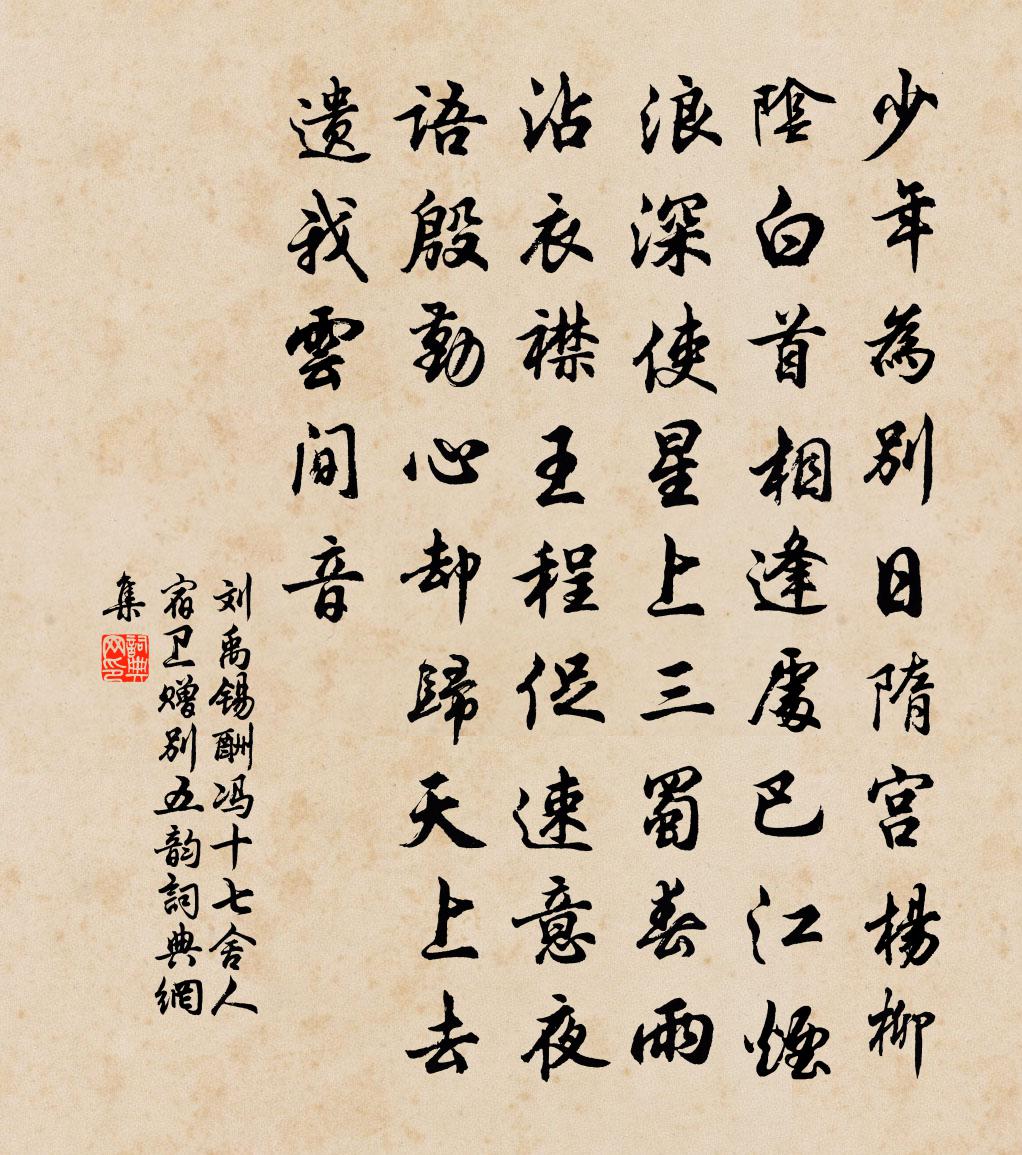 少年為別日隋宫楊柳
陰白首相逢處巴江煙
浪深使星上三蜀春雨
沾衣襟王程促速意夜
語殷勤心却歸天上去
遗我雲间音
刘禹锡酬冯十七舍人
宿卫赠别五韵詞典網
集
詞典網印